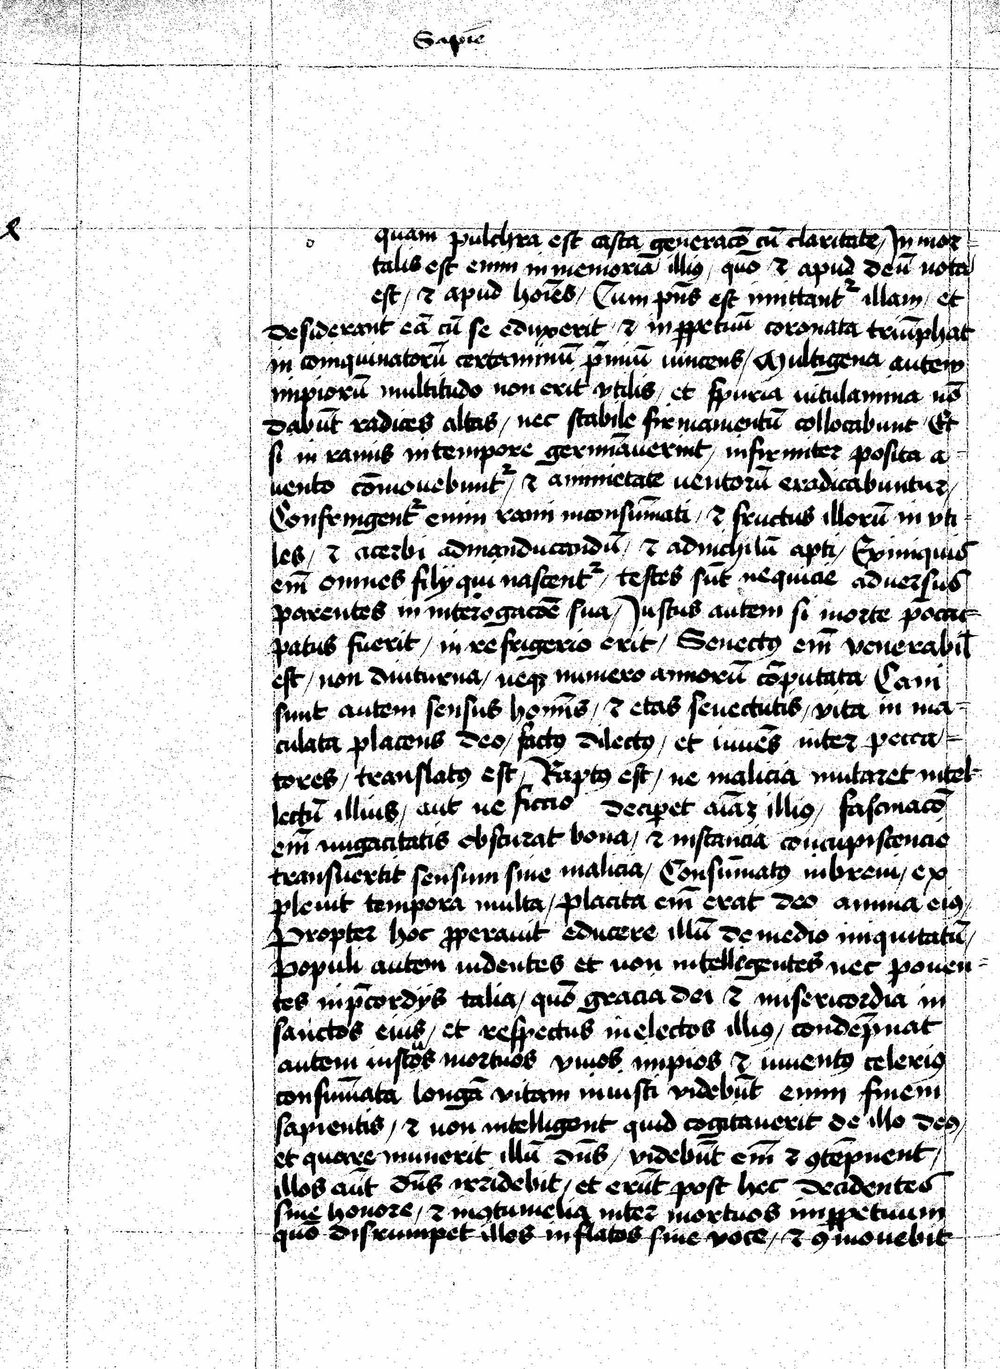 Sapiē
quam pulchra est casta generacō cū claritate / In mor=
talis est enim in memoriā illiꝰ / quō ⁊ apud deū nota
est / ⁊ apud hoīēs / Cum pn̄s est imittantᷣ illam / et
desiderant eā cū se eduxerit / ⁊ inꝑpetuū coronata triūphat
in coinquinatorū certaminū p̄miū vincens / Multigena autem
impiorū multitudo non erit vtilis / et spuria vitulamina nō
dabūt radices altas / nec stabile firmamentū collocabunt Et
si in ramis in tempore germīauerint / infirmiter posita a
vento cōmouebuntᷣ / ⁊ a nimietate uentorū eradicabuntur /
Confringentᷣ enim rami inconsūmati / ⁊ fructus illorū in vti=
les / ⁊ acerbi admanducandū / ⁊ adnichilū apti / Ex iniquis
em̄ omnes filij qui nascentᷣ / testes sūt nequicie aduersus
parentes in interogacōē sua / Justus autem si morte p̄occu=
patus fuerit / in refrigerio erit / Senectꝰ em̄ venerabil̄
est / non diuturna / neqꝫ numero annorū cōputata Cani
sunt autem sensus homīs / ⁊ etas senectutis / vita in ma=
culata placens deo / factꝰ dilectꝰ / et viuēs inter pecca=
tores / translatꝰ est / Raptꝰ est / ne malicia mutaret intel=
lectū illius / aut ne fictio decipet aīaꝫ illiꝰ / fascinacō
em̄ nugacitatis obscurat bona / ⁊ instancia concupiscencie
transuertit sensum sine malicia / Consūmatꝰ in breui / ex
pleuit tempora multa / placita em̄ erat deo anima eiꝰ /
Propter hoc ꝓperauit educere illū de medio iniquitatū /
Populi autem uidentes et non intelligentes nec ponen=
tes inp̄cordijs talia / quō gracia dei ⁊ misericordia in
sanctos eius / et respectus in electos illiꝰ / condēpnat
autem iustꝰ mortuos viuos impios ⁊ iuuentꝰ celeriꝰ
consūmata longā vitam iniusti videbūt enim finem
sapientis / ⁊ non intelligent quid cogitauerit de illo deꝰ /
et quare munierit illū dn̄s / videbūt em̄ ⁊ ꝯtēpnent /
illos aūt dn̄s irridebit / et erūt post hec decidentes
sine honore / ⁊ in ꝯtumelia inter mortuos inꝑpetuum
quō disrumpet illos inflatos sine voce / ⁊ ꝯmouebit